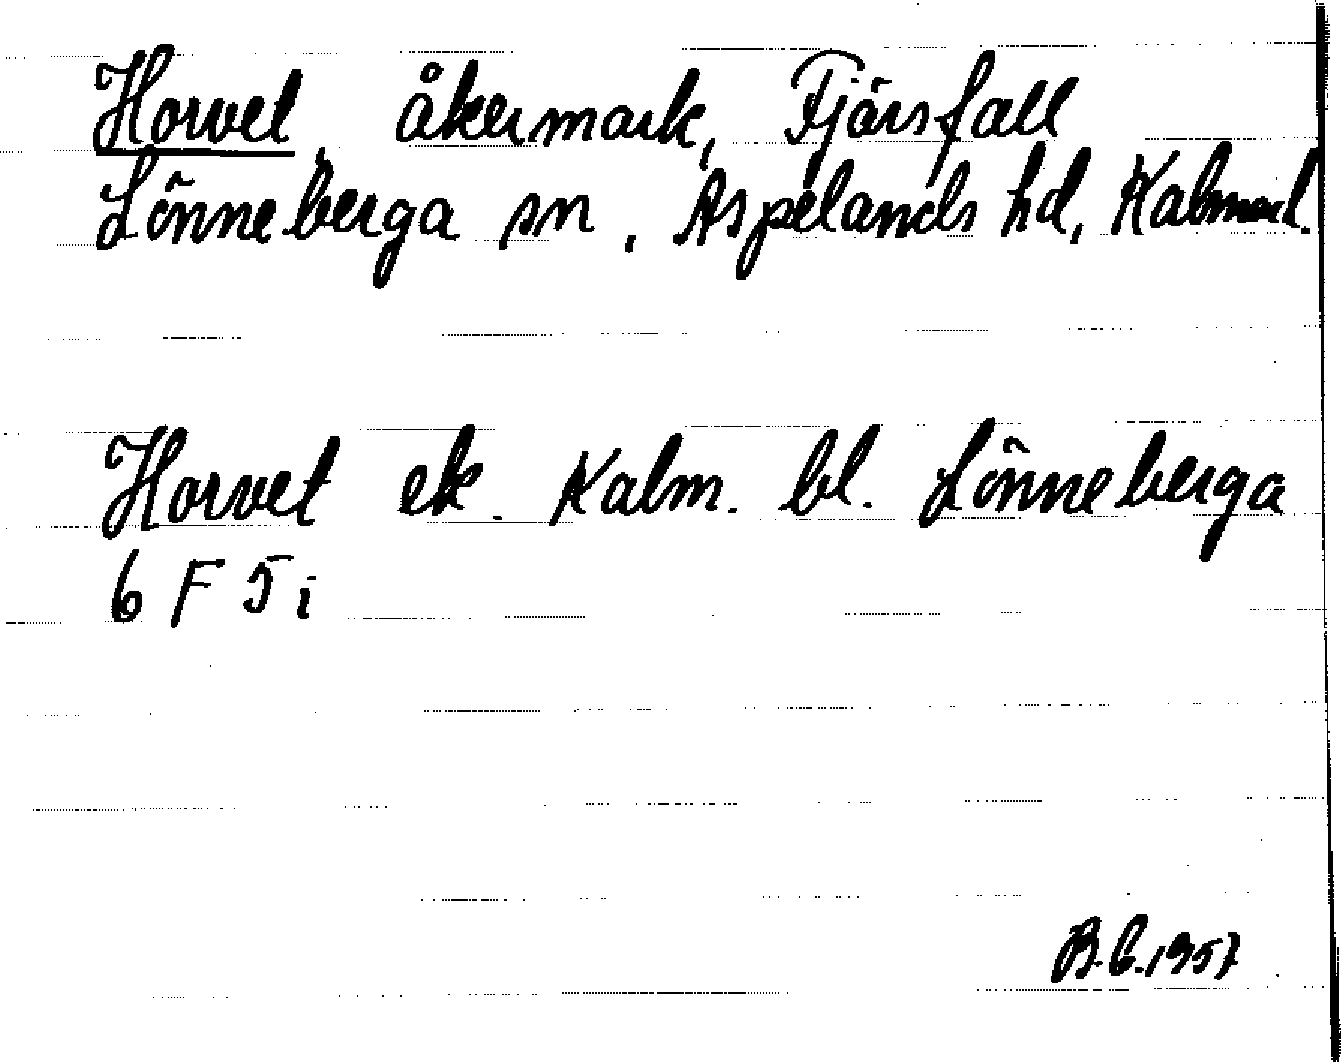 Horvet åkermark, Fjärsfall
Lönneberga sn, Aspelands hd, Kalmar l.
Horvet ek. Kalm. bl. Lönneberga
6 F 5 i
B.G. 1957